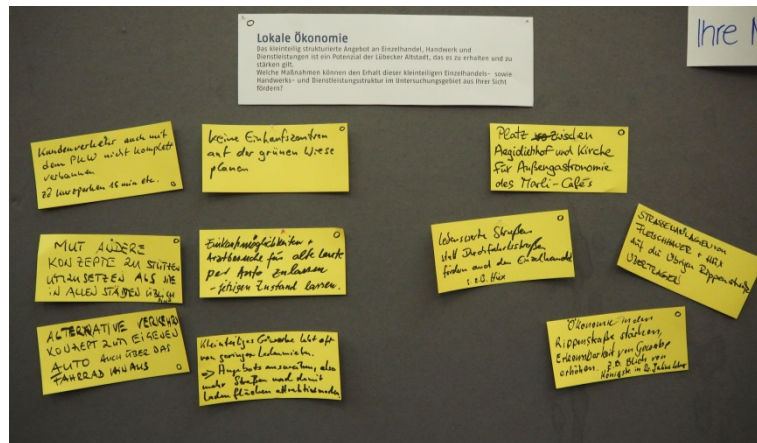 Lokale Ökonomie
Das kleinteilig strukturierte Angebot an Einzelhandel, Handwerk und
Dienstleistungen ist ein Potenzial der Lübecker Altstadt, das es zu erhalten und zu
stärken gilt.
Welche Maßnahmen können den Erhalt dieser kleinteiligen Einzelhandels- sowie
Handwerks- und Dienstleistungsstruktur im Untersuchungsgebiet aus Ihrer Sicht
fördern?
Ihre
Kundenverkehr auch mit
dem PKW nicht komplett
verbannen
zB Kurzparken 15 min etc.
Keine Einkaufszentren
auf der grünen Wiese
planen
Platz zwischen
Aegidienhof und Kirche
für Außengastronomie
des Marli-Cafés
MUT ANDERE
KONZEPTE ZU STÜTZEN
UMZUSETZEN ALS SIE
IN ALLEN STÄDTEN ÜBLICH
Einkaufmöglichkeiten +
Arztbesuche für alte Leute
per Auto zulassen
- jetzigen Zustand lassen.
Lebenswerte Straßen
statt Durchfahrtsstraßen
fördern auch den Einzelhandel
s. z.B. Hüx
FLEISCHHAUER + HÜX
auf die übrigen Rippenstraßen
ÜBERTRAGEN
ALTERNATIVE VERKEHRS
KONZEPT ZUM EIGENEN
AUTO AUCH ÜBER DAS
FAHRRAD HINAUS
Kleinteiliges Gewerbe lebt oft
von geringen Ladenmieten.
=> Angebots ausweiten, also
mehr Straßen und damit
Ladenflächen attraktiver machen
Ökonomie in den
Rippenstraße stärken,
Erkennbarkeit von Gewerbe
erhöhen. z.B. Blick von
Königstr. in